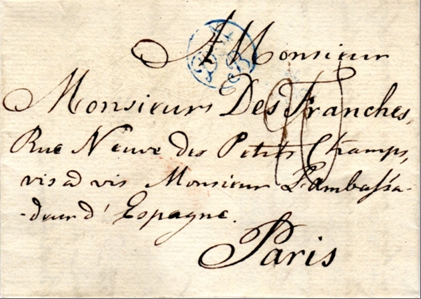 A Monsieur
Monsieurs Des Franches,
Rue Neuve des Petits Champs,
vis a vis Monsieur L'ambassa-
-deur d'Espagne.
Paris